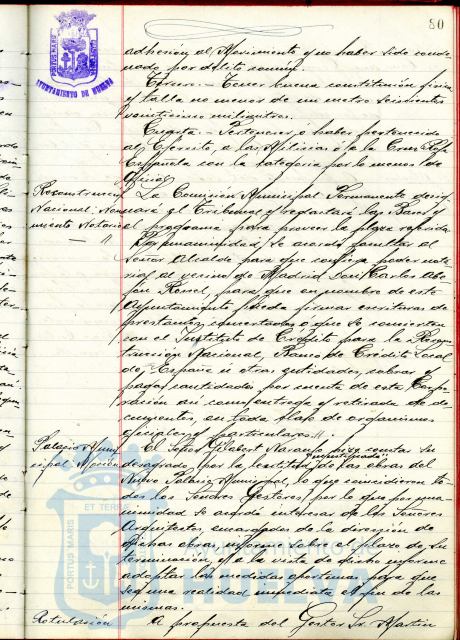 80
AYUNTAMIENTO DE HUELVA
adhesión al Movimiento y no haber sido conde-
nado por delito común.
Tercero.- Tener buena constitución física
y talla no menor de un metro seiscientos
veinticinco milímetros.
Cuarta.- Pertenecer ó haber pertenecido
al Ejército, a las Milicias ó a la Cruz Roja
Española con la categoría por lo menos de
oficial.
Reconstrucción La Comisión Municipal Permanente desig-
Nacional. Nom- nará el Tribunal y redactará las Bases y
miento Notarial el programa para proveer la plaza referida
— " Por unanimidad, se acordó facultar al
Señor Alcalde para que confiera poder nota-
rial al vecino de Madrid Don Carlos
para que en nombre de este
Ayuntamiento pueda firmar escrituras de
prestamos concertados o que se concierten
con el Instituto de Crédito para la Recons-
trucción Nacional, Banco de Crédito Local
de España ú otras entidades, cobrar y
pagar cantidades por cuenta de esta Corpo-
ración así como entrega y retirada de do-
cumentos, en toda clase de organismos
oficiales y particulares.
Palacio Muni- El Señor Gilabert Naranjo hizo constar su
cipal. Moción desagrado por la lentitud injustificada de las obras del
Nuevo Palacio Municipal, lo que coincidieron to-
dos los Señores Gestores, por lo que por una-
nimidad se acordó interesar de los Señores
Arquitectos, encargados de la dirección de
dichas obras informen sobre el plazo de su
terminación, y a la vista de dicho informe
adoptar las medidas oportunas para que
sea una realidad inmediata el fin de las
mismas.
Rotulación A propuesta del Gestor Sr. Martin
PORTUS MARIS ET TERRE
Ayuntamiento de
HUELVA